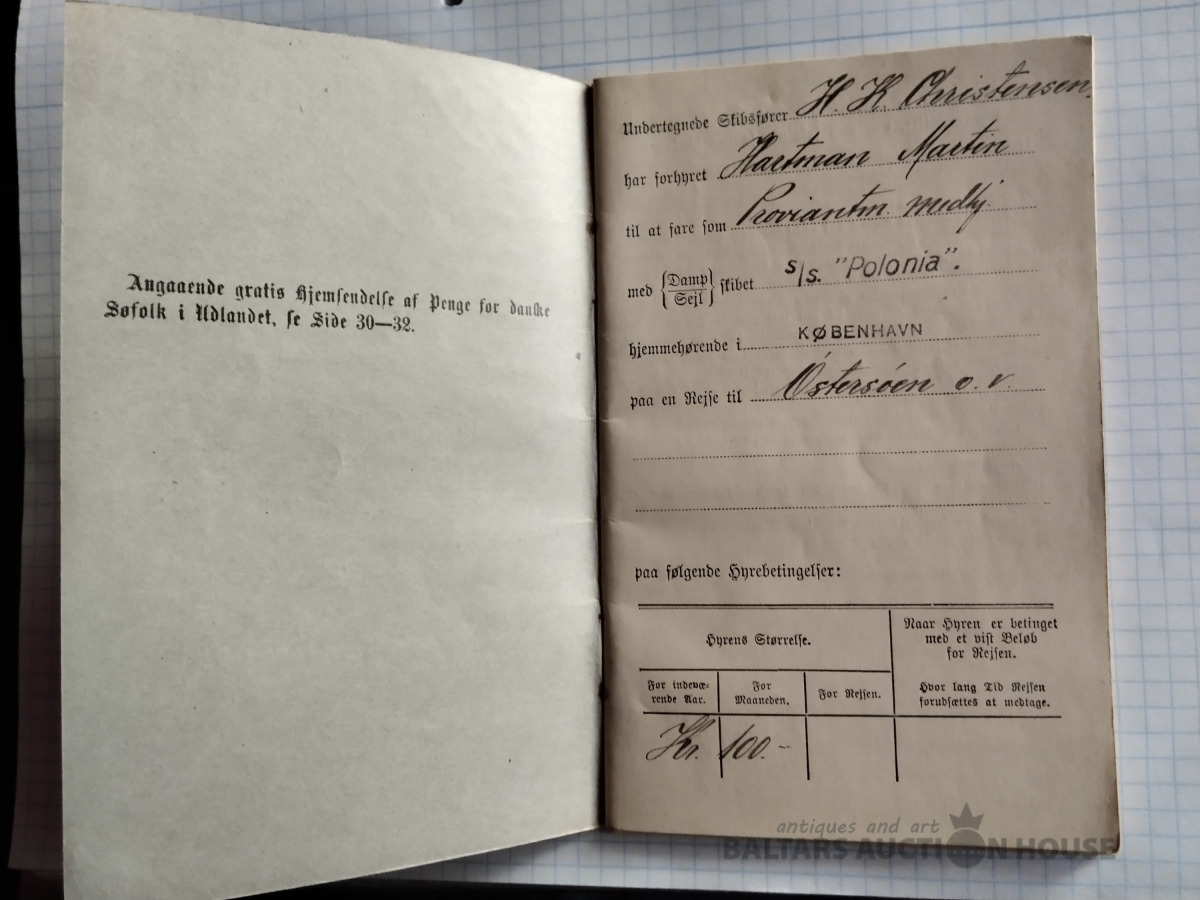 Angaaende gratis Hjemsendelse af Penge for danske
Søfolk i Udlandet, se Side 30—32.
Undertegnede Skibsfører H. K. Christensen.
har forhyret Hartman Martin
til at fare som Proviantm. medhj.
med {Damp/Sejl} skibet s/s. "Polonia".
hjemmehørende i KØBENHAVN
paa en Rejse til Østersøen o. v.
paa følgende Hyrebetingelser:
Hyrens Størrelse.
For indevæ-
rende Aar.
For
Maaneden.
For Rejsen.
Naar Hyren er betinget
med et vist Beløb
for Rejsen.
Hvor lang Tid Rejsen
forudsættes at medtage.
Kr. 100.-
antiques and art
BALTARS AUCTION HOUSE